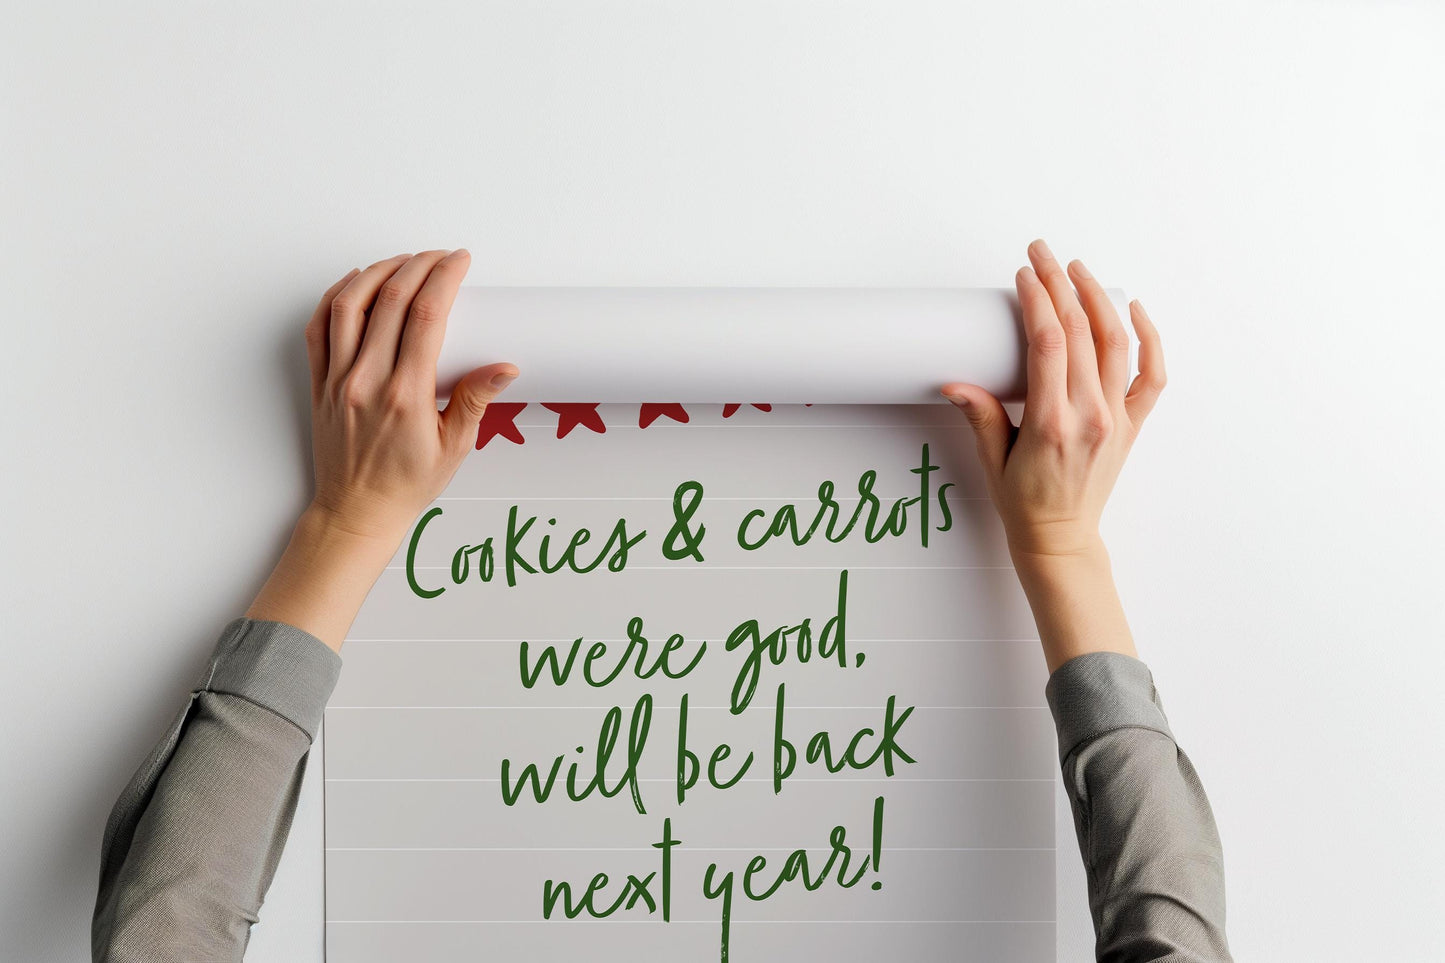 Cookies & carrots
were good,
will be back
next year!